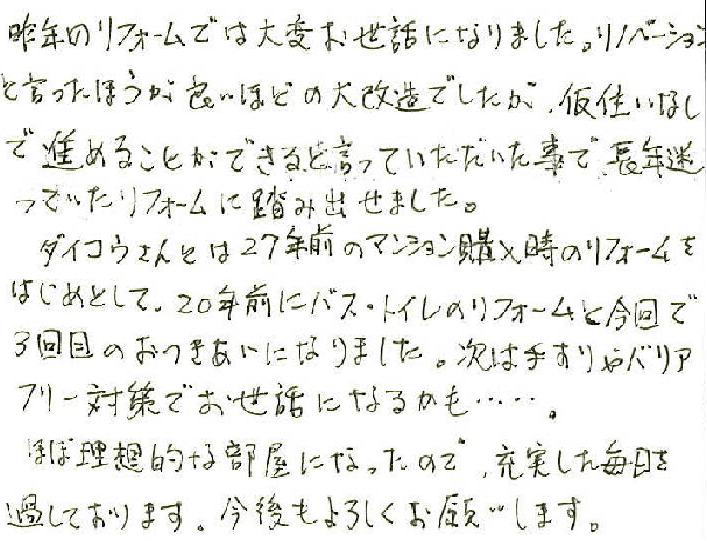 昨年のリフォームでは大変お世話になりました。リノベーション
と言ったほうが良いほどの大改造でしたが、仮住いなし
で進めることができると言っていただいた事で、長年迷
っていたリフォームに踏み出せました。
ダイコウさんとは27年前のマンション購入時のリフォームを
はじめとして、20年前にバス・トイレのリフォームと今回で
3回目のおつきあいになりました。次は手すりやバリア
フリー対策でお世話になるかも……。
ほぼ理想的な部屋になったので、充実した毎日を
過しております。今後もよろしくお願いします。